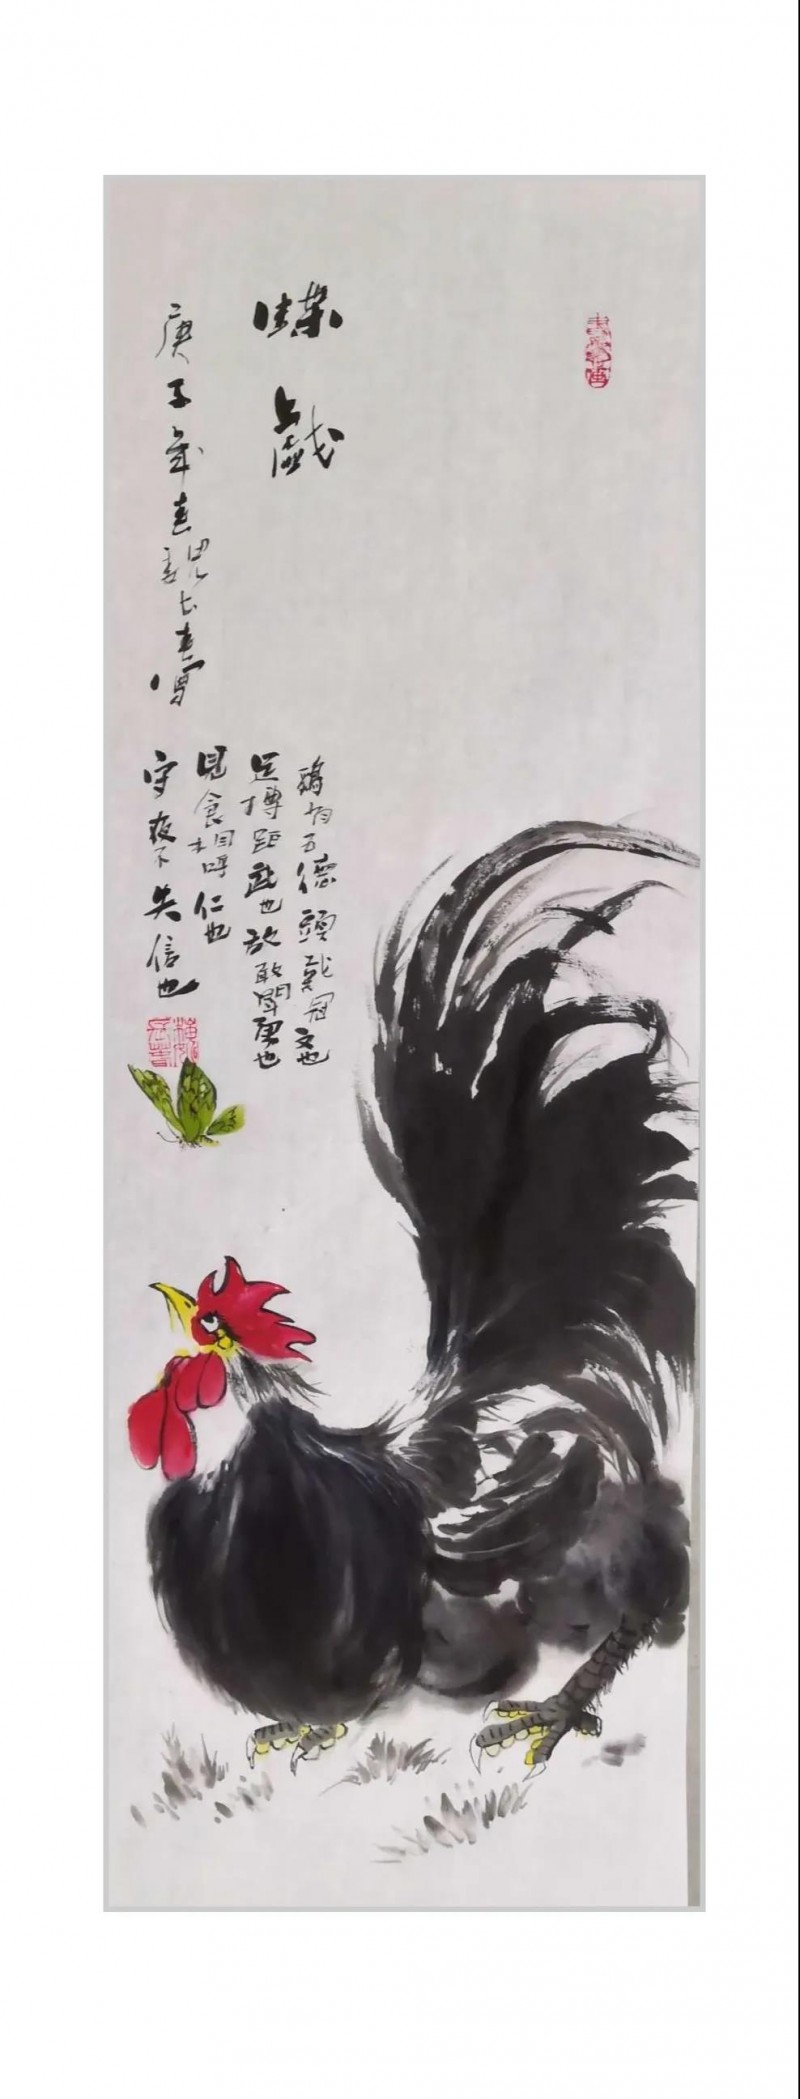 蝶戲
庚子年春魏士喜寫
鷄有五德頭戴冠文也
足搏距武也敌敢鬪勇也
見食相呼仁也
守夜不失信也